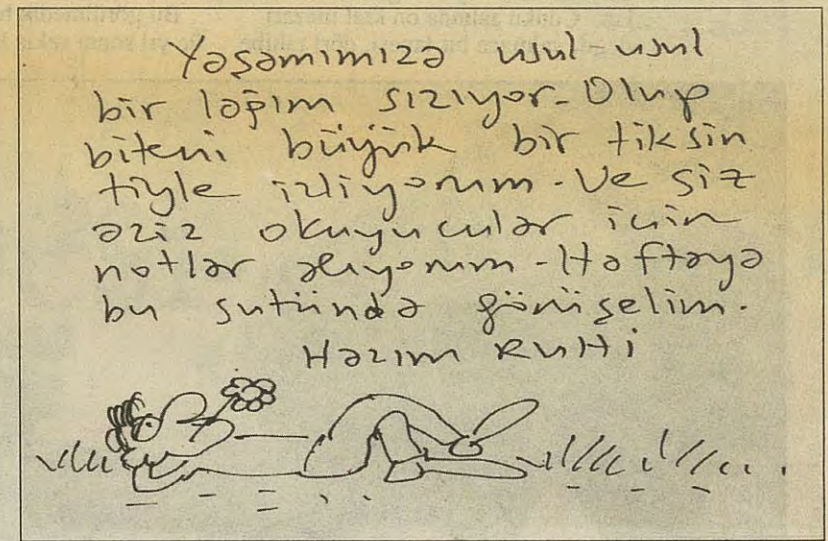 Yaşamımıza usul-usul
bir lağım sızıyor-Olup
biteni büyük bir tiksin
tiyle izliyorum-Ve siz
aziz okuyucular için
notlar alıyorum-Haftaya
bu sutünda görüşelim.
Hazım RUHİ